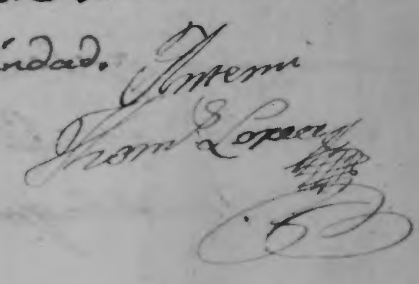 indad. Antemi
Thom.s Lopez